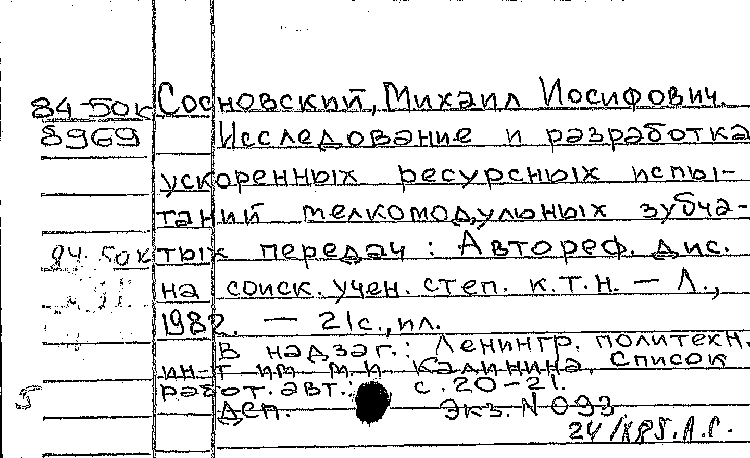 84-50к Сосновский, Михаил Иосифович.
8969 Исследование и разработка
ускоренных ресурсных испы-
таний мелкомодульных зубча-
84-50к тых передач : Автореф. дис.
на соиск. учен. степ. к.т.н. — Л.,
1982. — 21с., ил.
В надзаг.: Ленингр. политехн.
ин-т им. М.И. Калинина. Список
работ. авт.: с. 20-21.
5
Деп. Экз. N 093